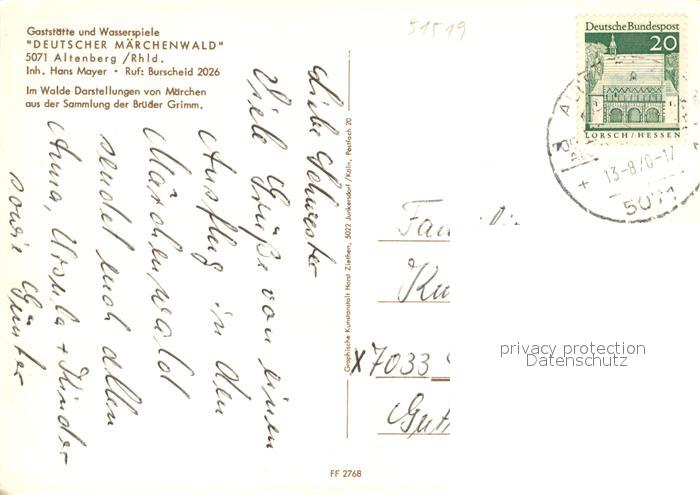 Gaststätte und Wasserspiele
"DEUTSCHER MÄRCHENWALD"
5071 Altenberg /Rhld.
Inh. Hans Mayer • Ruf: Burscheid 2026
Im Walde Darstellungen von Märchen
aus der Sammlung der Brüder Grimm.
51519
Deutsche Bundespost
20
LORSCH/HESSEN
13-8/0-17
5071
Liebe Schwester
Viele Grüße von einem
Ausflug in den
Märchenwald
sendet euch allen
Anna, Ursula + Kinder
sowie Günter
Graphische Kunstanstalt Horst Ziethen, 5022 Junkersdorf/Köln, Postfach 20
Fam
Ku
x7033
privacy protection
Datenschutz
FF 2768